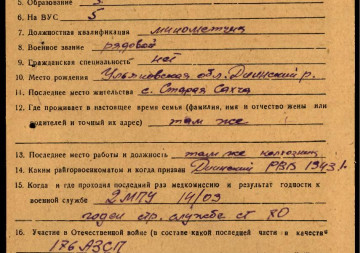 5. Образование 3
6. На ВУС 5
7. Должностная квалификация минометчик
8. Военное звание рядовой
9. Гражданская специальность нет
10. Место рождения Ульяновская обл. р.
11. Последнее место жительства с. Старая Сахча
12. Где проживает в настоящее время семья (фамилия, имя и отчество жены или
родителей и точный их адрес) там же
13. Последнее место работы и должность там же колхозник
14. Каким райгорвоенкоматом и когда призван РВК 1943 г.
15. Когда и где проходил последний раз медкомиссию и результат годности к
военной службе 2 МПУ 14/09
годен стр. службе ст 80
16. Участие в Отечественной войне (в составе какой последней части и в качестве
176 АЗСП